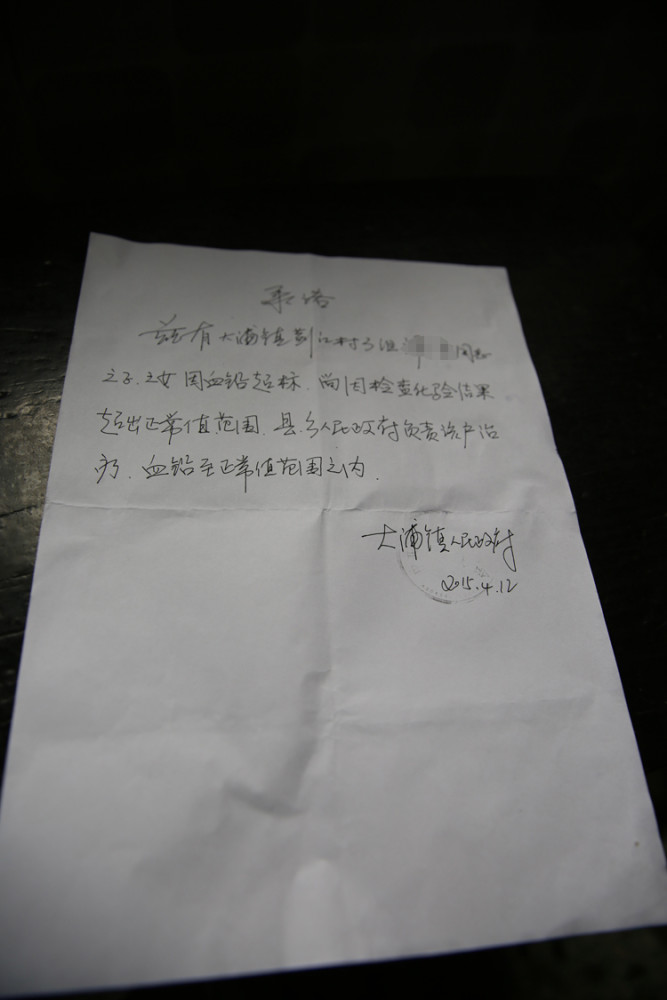 承诺
兹有大浦镇 江村3组 同志
之子.之女因血铅超标.尚因检查化验结果
超出正常值范围.县.乡人民政府负责该户治
疗.血铅至正常值范围之内.
大浦镇人民政府
2015.4.12